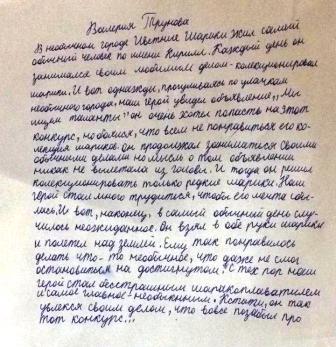 Валерия Трунова
В необычном городе Цветные Шарики жил самый
обычный человек по имени Кирилл. Каждый день он
занимался своим любимым делом-коллекционировал
шарики. И вот однажды, прогуливаясь по улочкам
необычного города, наш герой увидел объявление „Мы
ищем таланты" он очень хотел попасть на этот
конкурс, но боялся, что всем не понравиться его ко-
лекция шариков. Он продолжал заниматься своими
обычными делами но мысль о том объявлении
никак не вылетала из головы. И тогда он решил
коллекционировать только редкие шарики. Наш
герой стал много трудиться, чтобы его мечта сбы-
лась. И вот, наконец, в самый обычный день слу-
чилось неожиданное. Он взял в обе руки шарики
и полетел над землёй. Ему так понравилось
делать что-то необычное, что даже не смог
остановиться на достигнутом. С тех пор наш
герой стал бесстрашным шарикоплавателем
и самое главное-необычным. Кстати, он так
увлекся своим делом, что вовсе позабыл про
тот конкурс...